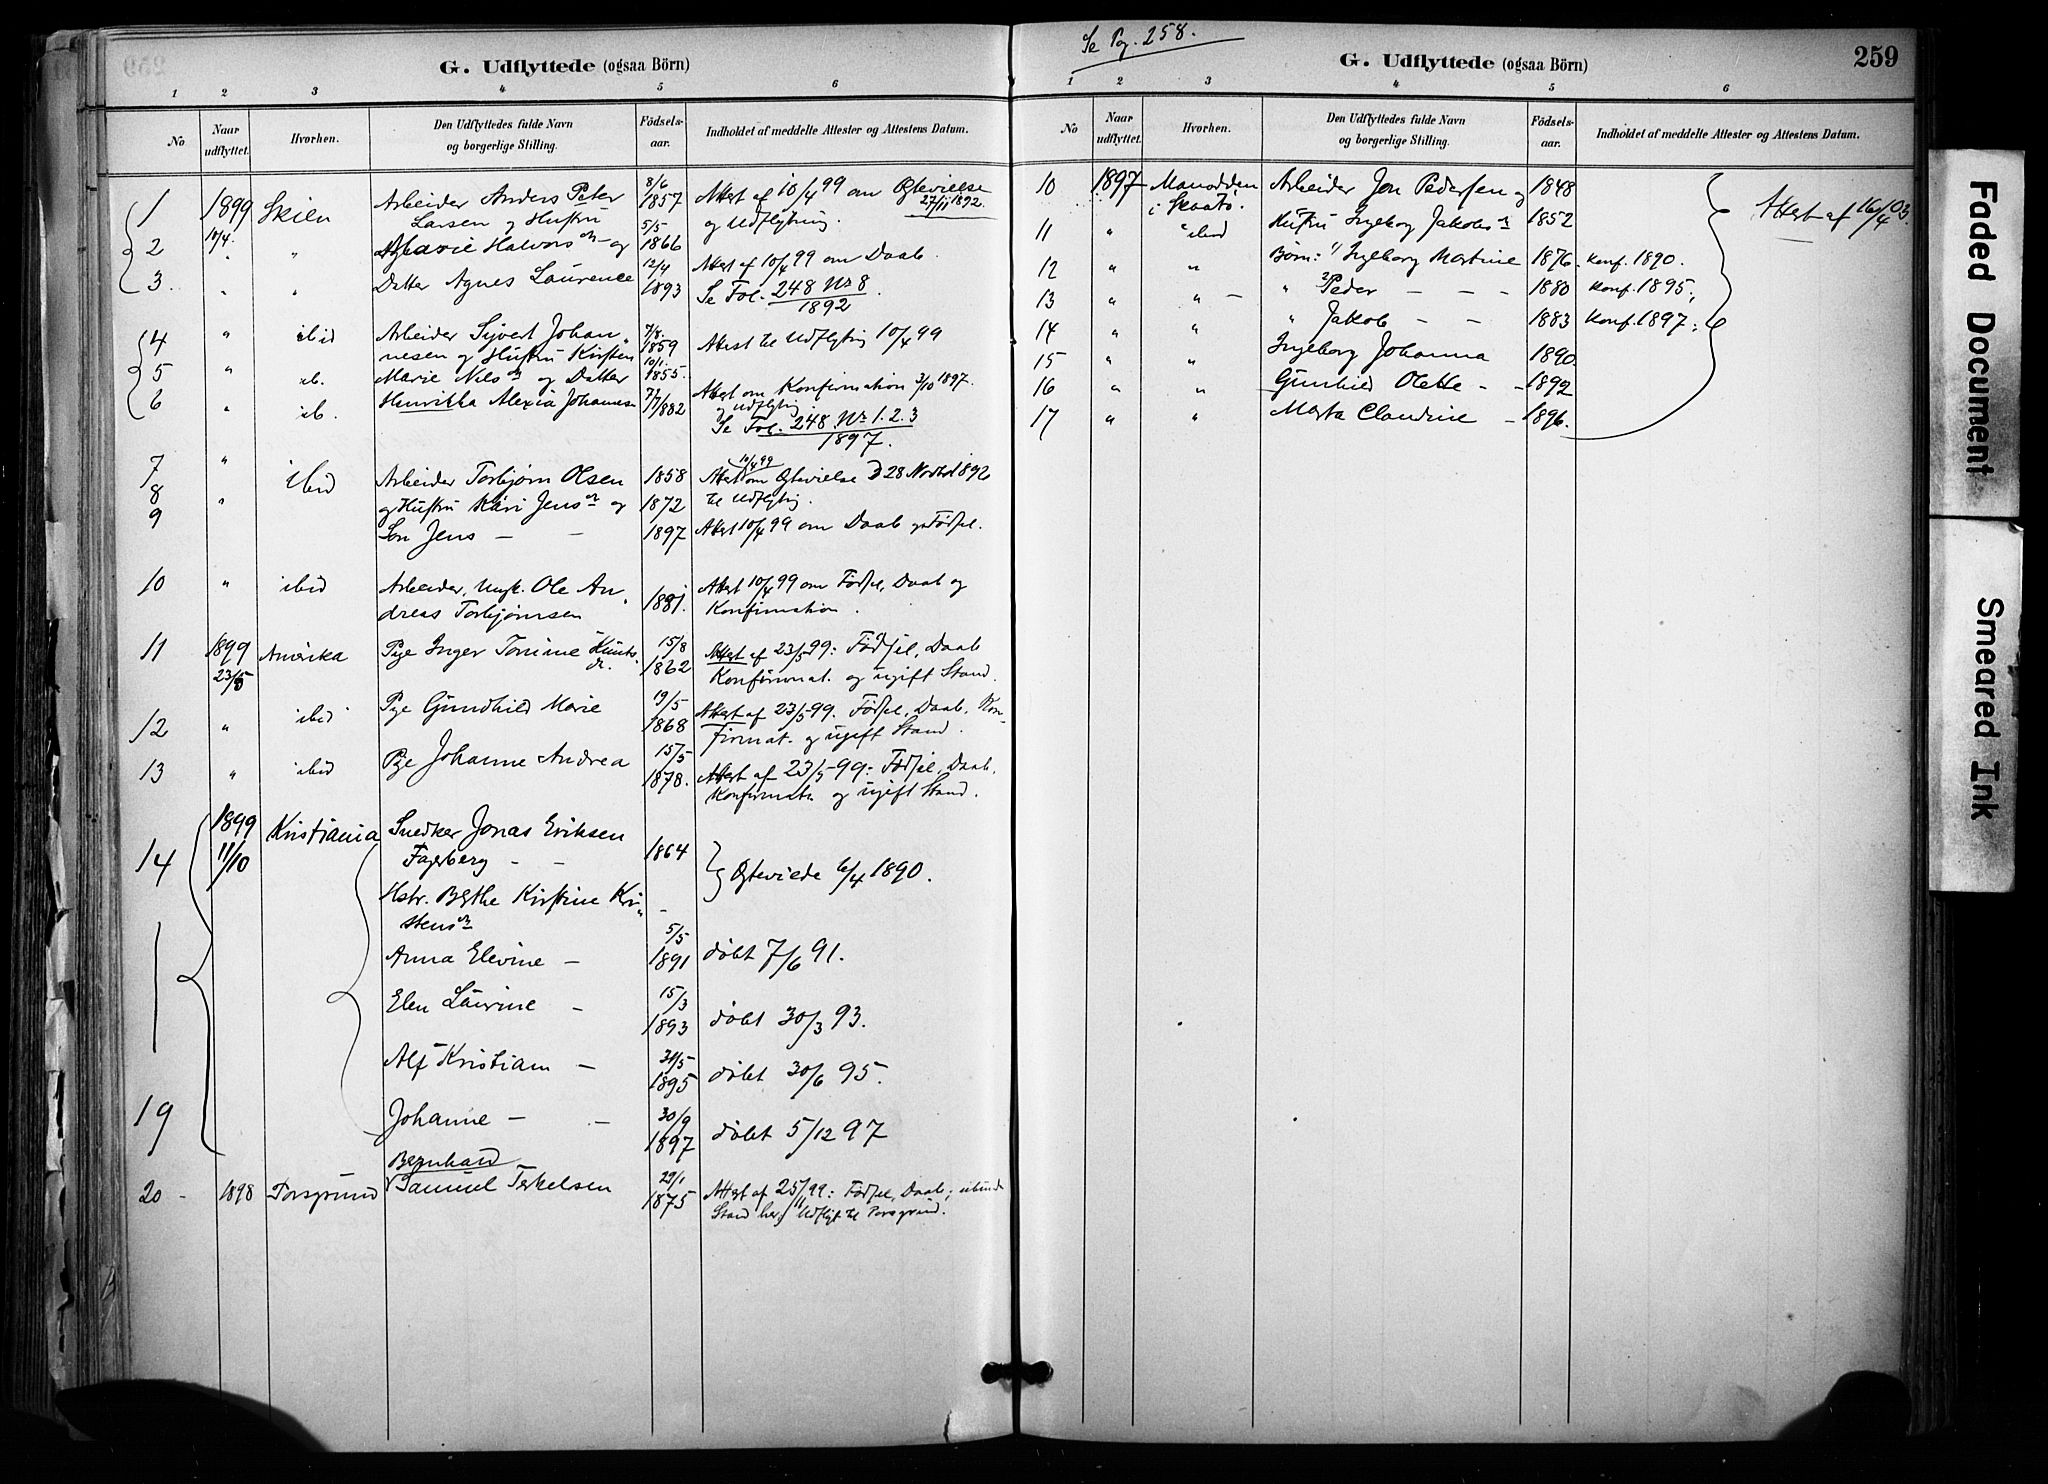 G. Udflyttede (ogsaa Börn)
1 2 3 4 5 6
No
Naar udflyttet.
Hvorhen.
Den Udflyttedes fulde Navn og borgerlige Stilling.
Födsels-aar.
Indholdet af meddelte Attester og Attestens Datum.
1 1899 Skien Arbeider Anders Peter 8/6 1857 Attest af 10/4 99 om Ægtevielse 27/11 1892.
10/4. Larsen og Hustru 5/5 og Udflytning.
2 " " Marie Halvorsdr og 1866
3. " " Datter Agnes Laurence 12/4 1893 Attest af 10/4 99 om Daab.
Se Fol. 248 No 8
1892
4 " ibid Arbeider Sivert Johan- 7/8. 1859 Attest til Udflytning 10/4 99
nesen og Hustru Kirsten 10/1
5 " ib. Marie Nilsdr og Datter 1855. Attest om Konfirmation 3/10 1897.
6 " ib. Henrikka Alexia Johannes 7/7 1882 og Udflytnig.
Se Fol. 248 No 1. 2. 3
1897.
7 " ibid Arbeider Torbjørn Olsen 1858 Attest 10/4 99 om Ægtevielse D 28 Novbr 1892
8 " og Hustru Kari Jensdr og 1872 til Udflytnig.
9 Søn Jens — — 1897 Attest 10/4 99 om Daab og Fødsel.
10 " ibid Arbeider, Ungk. Ole An- 1881. Attest 10/4 99 om Fødsel, Daab og
dreas Torbjørnsen Konfirmation.
11 1899 Amerika Pige Inger Tomine Knuts- 15/8 Attest af 23/5 99: Fødsel, Daab
23/5 dr. 1862 Konfirmat. og ugift Stand.
12 " ibid Pige Gundhild Marie 19/5 1868 Attest af 23/5 99: Fødsel, Daab, Kon-
firmat. og ugift Stand.
13 " ibid Pige Johanne Andrea 15/5 1878. Attest af 23/5 99: Fødsel, Daab,
Konfirmatn og ugift Stand.
14 1899 Kristiania Snedker Jonas Eriksen
11/10 Fagerberg — — 1864 Ægteviede 6/4 1890.
Hstr. Berthe Kirstine Kri- —
stensdr
Anna Elevine — 5/5 1891 døbt 7/6 91.
Elen Laurine — 15/3 1893 døbt 30/3 93.
Alf Kristian — 31/5 1895 døbt 30/6 95.
19 Johanne — — 30/9 1897 døbt 5/12 97
Bernhard
20 - 1898 Porsgrund Samuel Terkelsen 29/1 1875 Attest af 25/11 99: Fødsel, Daab; ubunde
Stand her; Udflyt til Porsgrund.
Se Pg. 258.
259
G. Udflyttede (ogsaa Börn)
1 2 3 4 5 6
No
Naar udflyttet.
Hvorhen.
Den Udflyttedes fulde Navn og borgerlige Stilling.
Födsels-aar.
Indholdet af meddelte Attester og Attestens Datum.
10 1897 Manodden Arbeider Jon Pedersen og 1848 Attest af 16/4 03.
i Skaatø.
11 " ibid Hustru Ingeborg Jakobsdr 1852
12 " " Børn: 1) Ingeborg Martine 1876. Konf. 1890.
13 " " — " 2 Peder — — — 1880 Konf. 1895.;
14 " " " Jakob — — 1883 Konf. 1897.;
15 " " Ingeborg Johanna 1890.
16 " " Gunhild Olette — — 1892
17 " " Marta Claudine — 1896.
Faded Document
Smeared Ink